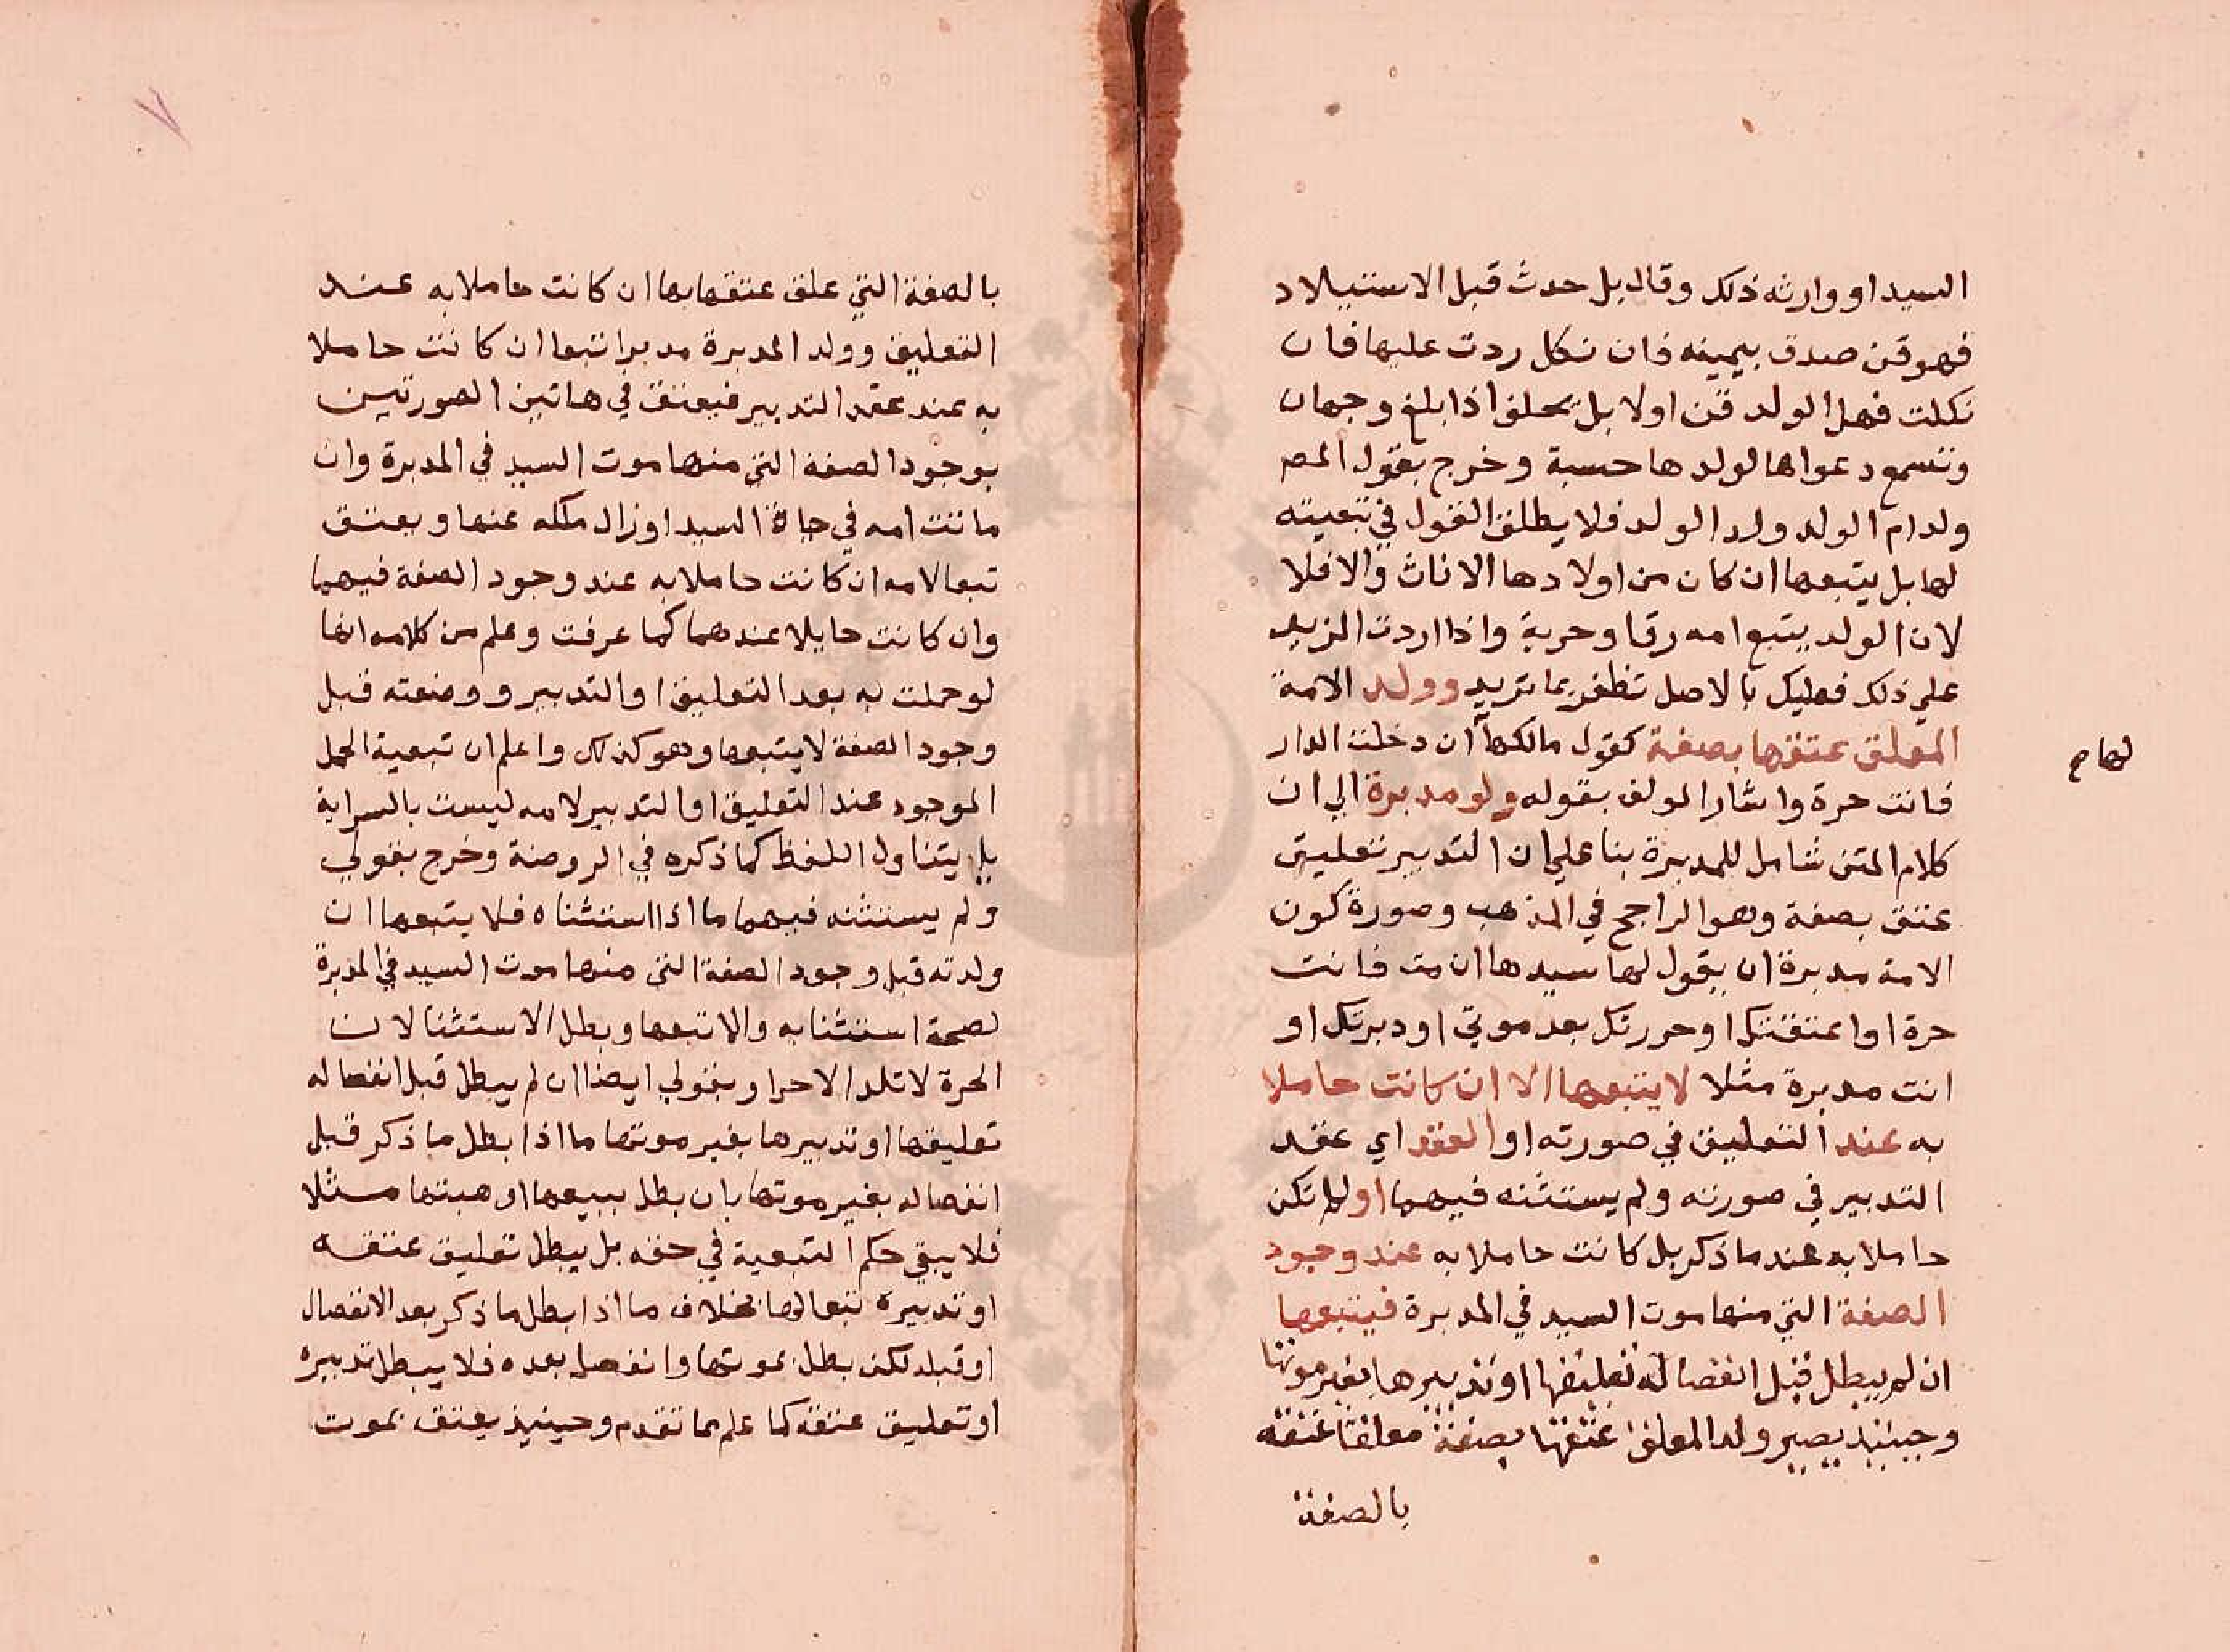 السيد او وارثه ذلك وقال بل حدث قبل الاستيلاد
فهو قن صدق بيمينه فان نكل ردت عليها فان
نكلت فهل الولد قن اولا بل يحلف اذا بلغ وجهان
وتسمع دعواها لولدها حسبة وخرج بقول المص
ولد ام الولد ولد الولد فلا يطلق القول في تبعيته
لها بل يتبعها ان كان من اولادها الاناث والا فلا
لان الولد يتبع امه رقا وحرية واذا اردت المزيد
علي ذلك فعليك بالاصل تظفر بما تريد وولد الامة
المعلق عتقها بصفة كقول مالكها ان دخلت الدار
لها صح
فانت حرة واشار المولف بقوله ولو مدبرة الي ان
كلام المتن شامل للمدبرة بنا علي ان التدبير تعليق
عتق بصفة وهو الراجح في المذهب وصورة كون
الامة مدبرة ان يقول لها سيدها ان مت فانت
حرة او اعتقتك او حررتك بعد موتي او دبرتك او
انت مدبرة مثلا لا يتبعها الا ان كانت حاملا
به عند التعليق في صورته او العقد اي عقد
التدبير في صورته ولم يستثنه فيهما او لم تكن
حاملا به عند ما ذكر بل كانت حاملا به عند وجود
الصفة التي منها موت السيد في المدبرة فيتبعها
ان لم يبطل قبل انفصاله تعليقها او تدبيرها بغير موتها
وحينيذ يصير ولد المعلق عتقها بصفة معلقا عتقه
بالصفة
بالصفة التي علق عتقها بها ان كانت حاملا به عند
التعليق وولد المدبرة مدبرا تبعا ان كانت حاملا
به عند عقد التدبير فيعتق في هاتين الصورتين
بوجود الصفة التي منها موت السيد في المدبرة وان
ماتت امه في حياة السيد او زال ملكه عنها ويعتق
تبعا لامه ان كانت حاملا به عند وجود الصفة فيهما
وان كانت حايلا عندهما كما عرفت وعلم من كلامه انها
لو حملت به بعد التعليق او التدبير ووضعته قبل
وجود الصفة لا يتبعها وهو كذلك واعلم ان تبعية الحمل
الموجود عند التعليق او التدبير لامه ليست بالسراية
بل يتناول اللفظ كما ذكره في الروضة وخرج بقولي
ولم يستثنه فيهما ما اذا استثناه فلا يتبعها ان
ولدته قبل وجود الصفة التي منها موت السيد في المدبرة
لصحة استثنايه والا تبعها وبطل الاستثنا لان
الحرة لا تلد الا حرا وبقولي ايضا ان لم يبطل قبل انفصاله
تعليقها او تدبيرها بغير موتها ما اذا بطل ما ذكر قبل
انفصاله بغير موتها بان بطل ببيعها او هبتها مثلا
فلا يبقي حكم التبعية في حقه بل يبطل تعليق عتقه
او تدبيره تبعا لها بخلاف ما اذا بطل ما ذكر بعد الانفصال
او قبله لكن بطل بموتها وانفصل بعده فلا يبطل تدبيره
او تعليق عتقه كما علم مما تقدم وحينيذ يعتق بموت